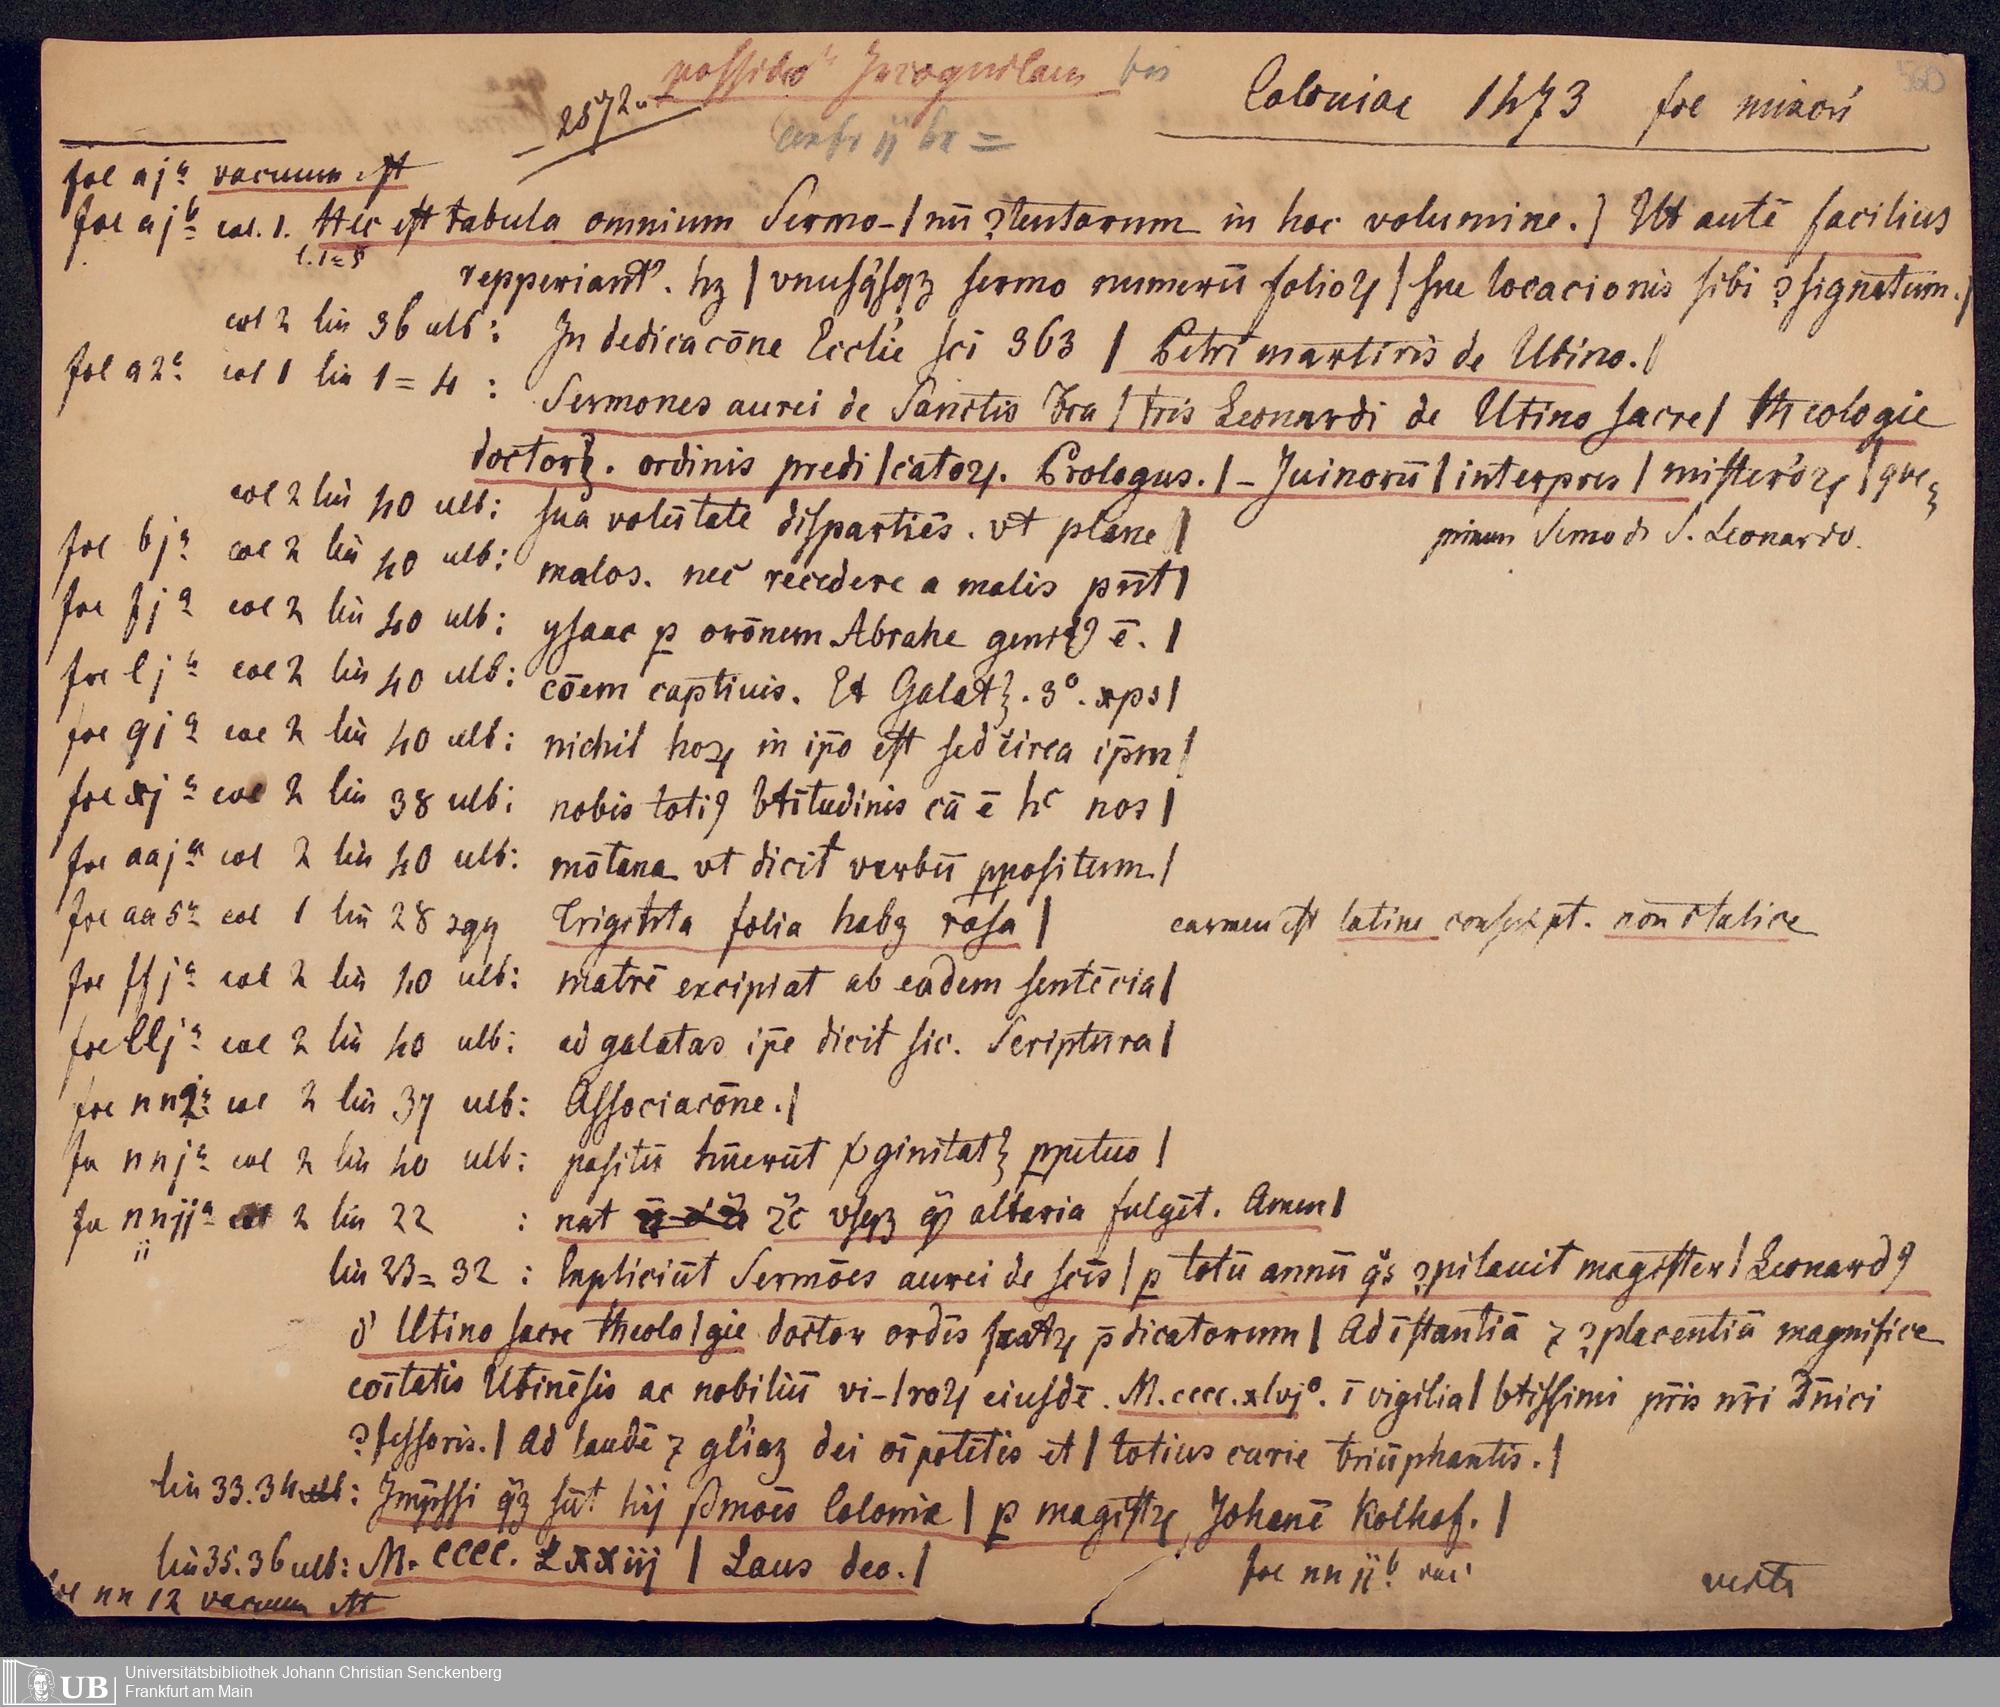 possideo
Coloniae 1473 fol minori
fol aj a vacuum est
fol aj b col. 1. Hec est tabula omnium Sermo-|nū ꝯtentorum in hoc volumine.| Ut autē facilius
l. 1=5
repperiant᷑. hꝫ | vnusqͥsqꝫ sermo numerū folioꝝ | sue locacionis sibi ꝯsignatum.|
col 2 lin 36 ult: In dedicacōne Ecclie sci 363 | Petri martiris de Utino.|
fol a2 a col 1 lin 1=4 : Sermones aurei de Sanctis Fra|tris Leonardi de Utino sacre| theologie
doctorꝫ. ordinis predi|catoꝝ. Prologus. | - Juinorū | interpres | misterioꝝ | que
primum Sermo de S. Leonardo.
col 2 lin 40 ult: sua volūtate dispartiēs. vt plane |
fol bj a col 2 lin 40 ult: malos. nec recedere a malis pn̄t |
fol fj a col 2 lin 40 ult: ysaac ꝑ orōnem Abrahe genitꝰ ē. |
fol lj a col 2 lin 40 ult: cōem captiuis. Et Galatꝫ. 3º. xps |
fol qj a col 2 lin 40 ult: nichil hoꝝ in ip̄o est sed circa ip̄m |
fol xj a col 2 lin 38 ult: nobis totiꝰ btītudinis cā ē hc nos |
fol aaj a col 2 lin 40 ult: mōtana vt dicit verbū ꝓpositum. |
fol aa5 a col 1 lin 28 sqq Trigīnta folia habꝫ rosa | carmen est latine conscript. non italice
fol ffj a col 2 lin 40 ult: matrē excipiat ab eadem sentēcia |
fol llj a col 2 lin 40 ult: ad galatas ip̄e dicit sic. Scriptura |
fol nn2 a col 2 lin 37 ult: Associacōne. |
fol nnj a col 2 lin 40 ult: positū hūerūt ꝟginitatꝫ ꝑpetuo |
fol nnjj a col 2 lin 22 : nat ⁊c vsqꝫ qͦ altaria fulgēt. Amen |
lin 23=32 : Expliciūt Sermōes aurei de scis | ꝑ totū annū qͦs ꝯpilauit magister | Leonardꝰ
d' Utino sacre theolo|gie doctor ordīs fratꝝ p̄dicatorum | Ad īstantiā ⁊ ꝯplacentiā magnifice
cōitatis Utinēsis ac nobiliū vi-|roꝝ eiusdē. M.cccc.xlvjº. ī vigilia | btissimi pr̄is nr̄i Dn̄ici
ꝯfessoris. | Ad laudē ⁊ gliaꝫ dei oīpotētis et | totius curie triūphantis. |
lin 33.34 : Jmpr̄ssi qͦꝫ sūt hij sꝰmoēs Colonie | ꝑ magistꝝ Johanē Kolhof. |
lin 35.36 ult: M. CCCC. LXXiij | Laus deo. |
fol nn jj b vac
verte
fol nn 12 vacuum est
Universitätsbibliothek Johann Christian Senckenberg
Frankfurt am Main
UB